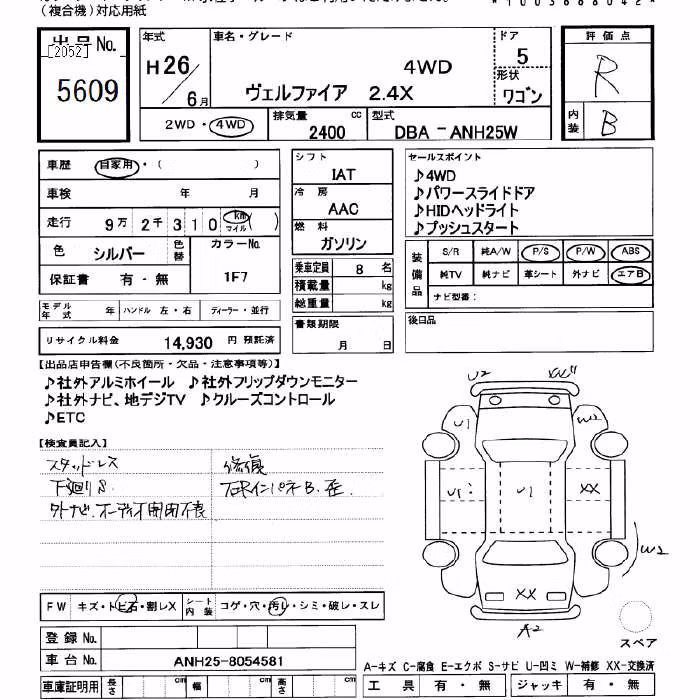 (複合機)対応用紙
*1003668042*
出品No.
[2052]
5609
年式
H26/6月
車名・グレード
4WD
ヴェルファイア 2.4X
ドア
5
形状
ワゴン
2WD・4WD
排気量 cc
2400
型式
DBA - ANH25W
評価点
R
内装
B
車歴 自家用・( )
車検 年 月
走行 9万2千310 km マイル ( )
色 シルバー 色替 カラーNo.
1F7
保証書 有・無
モデル年式 年 ハンドル 左・右 ディーラー・並行
リサイクル料金 14,930 円 預託済
シフト
IAT
冷房
AAC
燃料
ガソリン
乗車定員 8 名
積載量 kg
総重量 kg
書類期限
月 日
セールスポイント
♪4WD
♪パワースライドドア
♪HIDヘッドライト
♪プッシュスタート
装備品
S/R 純A/W P/S P/W ABS
純TV 純ナビ 革シート 外ナビ エアB
ナビ型番:
後日品
【出品店申告欄(不良箇所・欠品・注意事項等)】
♪社外アルミホイール ♪社外フリップダウンモニター
♪社外ナビ、地デジTV ♪クルーズコントロール
♪ETC
【検査員記入】
スタッドレス
下廻りS.
外ナビ.オーディオ開閉不良
修復
右Rインパネ B.歪.
U2
XX
U1
W2
U1
U1
XX
W2
XX
A2
スペア
FW キズ・トビ石・割レX シート内装 コゲ・穴・汚レ・シミ・破レ・スレ
登録No.
車台No. ANH25-8054581
車庫証明用 長さ cm 幅 cm 高さ cm
A-キズ C-腐食 E-エクボ S-サビ U-凹ミ W-補修 XX-交換済
工具 有・無 ジャッキ 有・無